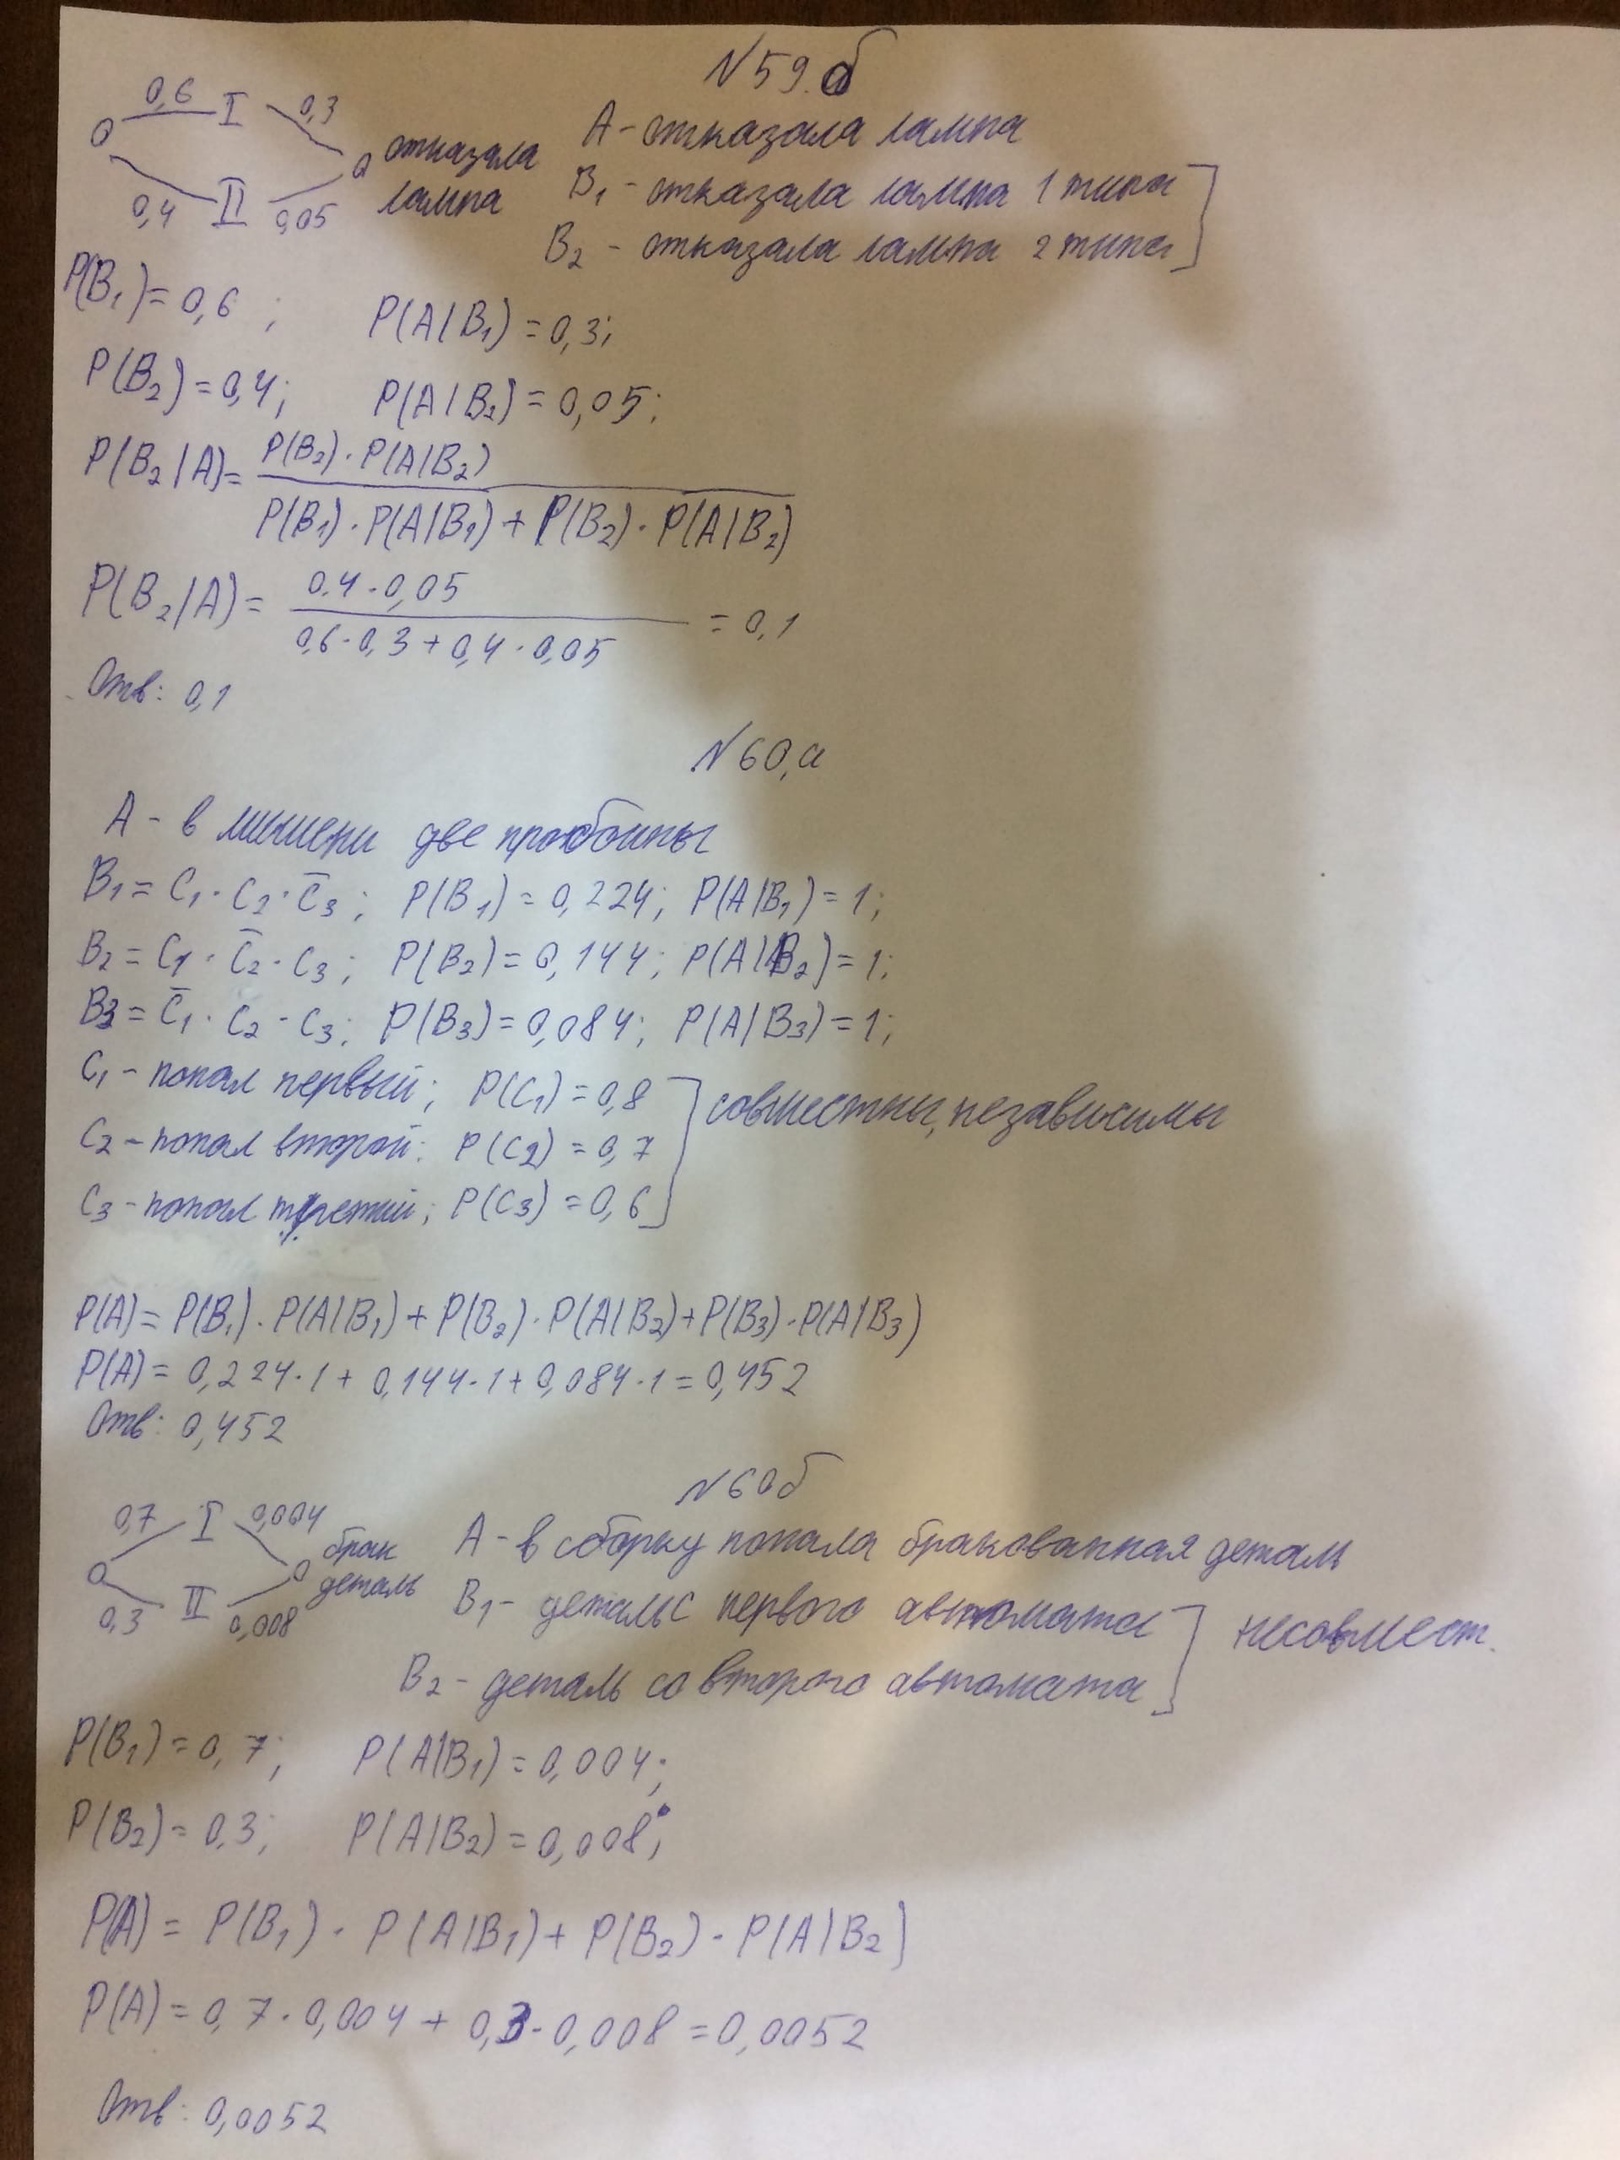 N59.б
0,6 I 0,3
0,4 II 0,05
отказала
лампа
A - отказала лампа
B₁ - отказала лампа 1 типа
B₂ - отказала лампа 2 типа
P(B₁) = 0,6 ; P(A/B₁) = 0,3;
P(B₂) = 0,4; P(A/B₂) = 0,05;
P(B₂/A) = P(B₂) · P(A/B₂)
P(B₁) · P(A/B₁) + P(B₂) · P(A/B₂)
P(B₂/A) = 0,4 · 0,05 = 0,1
0,6 · 0,3 + 0,4 · 0,05
Отв: 0,1
N60,а
A - в мишени две пробоины
B₁ = C₁ · C₂ · C̅₃; P(B₁) = 0,224; P(A/B₁) = 1;
B₂ = C₁ · C̅₂ · C₃; P(B₂) = 0,144; P(A/B₂) = 1;
B₃ = C̅₁ · C₂ · C₃; P(B₃) = 0,084; P(A/B₃) = 1;
C₁ - попал первый; P(C₁) = 0,8
C₂ - попал второй: P(C₂) = 0,7
C₃ - попал третий; P(C₃) = 0,6
совместны, независимы
P(A) = P(B₁) · P(A/B₁) + P(B₂) · P(A/B₂) + P(B₃) · P(A/B₃)
P(A) = 0,224 · 1 + 0,144 · 1 + 0,084 · 1 = 0,452
Отв: 0,452
N60б
0,7 I 0,004
0,3 II 0,008
брак
деталь
A - в сборку попала бракованная деталь
B₁ - деталь с первого автомата
B₂ - деталь со второго автомата
несовмест.
P(B₁) = 0,7; P(A/B₁) = 0,004;
P(B₂) = 0,3; P(A/B₂) = 0,008;
P(A) = P(B₁) · P(A/B₁) + P(B₂) · P(A/B₂)
P(A) = 0,7 · 0,004 + 0,3 · 0,008 = 0,0052
Отв: 0,0052